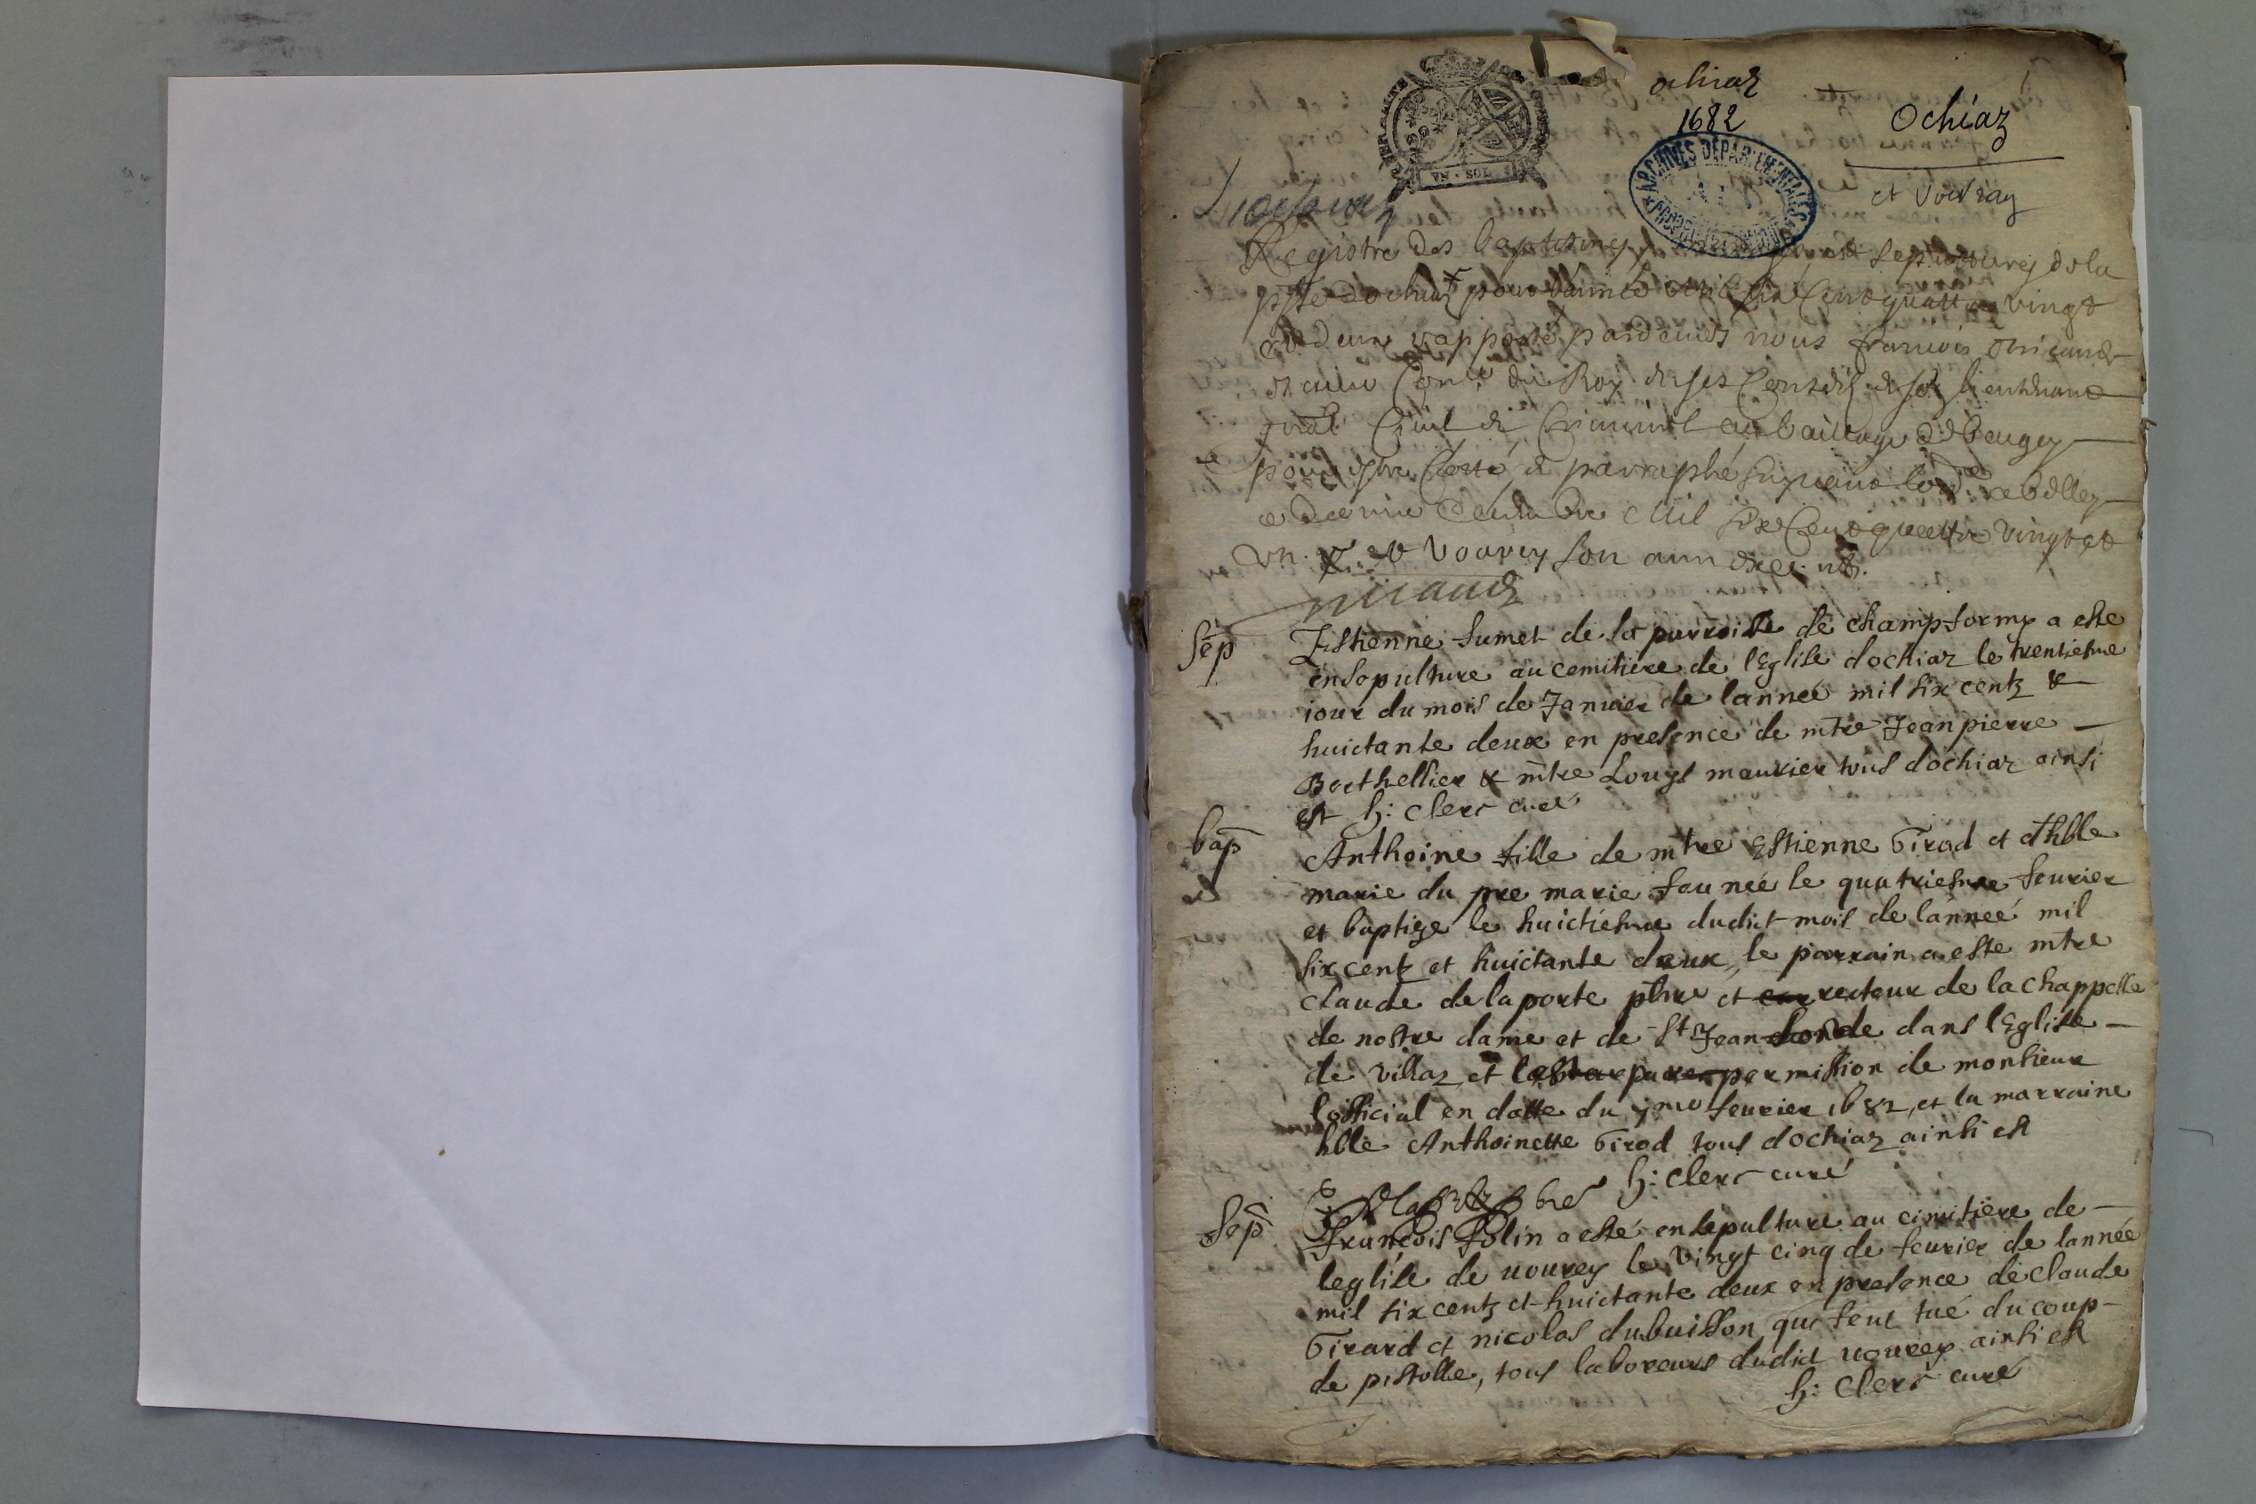 ochiaz
1682
Ochiaz
et Vouvray
UN · SOL
ARCHIVES DÉPARTEMENTALES
Registre des baptesmes et sepultures de la
psse dochiaz pour l'année mil six cent quattre vingt
et deux rapporté pardevant nous françois
du Roy en ses Conseils lieutenant
gnal Civil et Criminel au bailliage de beugey
pour estre Cotté et parraphé suyvant a belley
ce mil six Cent quattre vingt et
un. et Vouvrey son annexe
Sep
Estienne fumet de la parroisse de champfromy a esté
ensepulture au cemitiere de lEglise dochiaz le trentiesme
iour du mois de Januier de lanneé mil six centz &
huictante deux en presence de mtre Jean pierre
Berthellier & mtre Louys maurier tous dochiaz ainsi
est h: clerc curé
bap
Anthoine fille de mtre Estienne Girod et dhble
marie du pre mariés fou neé le quatriesme feurier
et baptize le huictiesme dudict mois de lanneé mil
six centz et huictante deux, le parrain a esté mtre
claude de la porte pbre et recteur de la chappelle
de nostre dame et de St Jean dans lEglise
de Villaz et permission de monsieur
lofficial en datte du feurier 1682, et la marraine
hble Anthoinette Girod tous dochiaz ainsi est
h: clerc curé
Sep
francois folin a esté ensepulture au cimitiere de
leglise de uourey le Vingt cinq de feurier de lannée
mil six centz et huictante deux en presence de claude
Girard et nicolas dubuisson qui feut tué du coup
de pistolle, tous laboreurs dudict uourey ainsi est
h: clerc curé